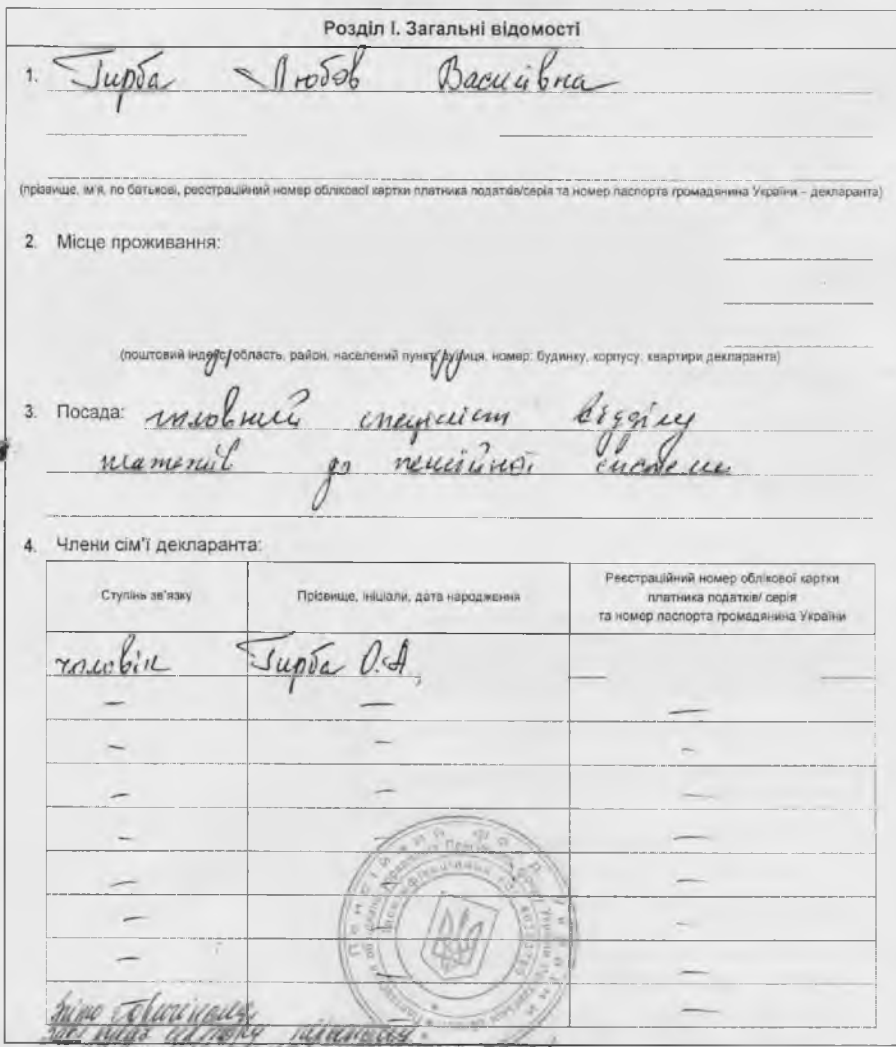 Розділ І. Загальні відомості
1. Гирба Любов Василівна
(прізвище, ім'я, по батькові, реєстраційний номер облікової картки платника податків/серія та номер паспорта громадянина України – декларанта)
2. Місце проживання:
(поштовий індекс, область, район, населений пункт, вулиця, номер: будинку, корпусу, квартири декларанта)
3. Посада: головний спеціаліст відділу
платежів до пенсійної системи
4. Члени сім'ї декларанта:
Ступінь зв'язку
Прізвище, ініціали, дата народження
Реєстраційний номер облікової картки
платника податків/ серія
та номер паспорта громадянина України
чоловік Гирба О.А,
Пенсійний фонд України